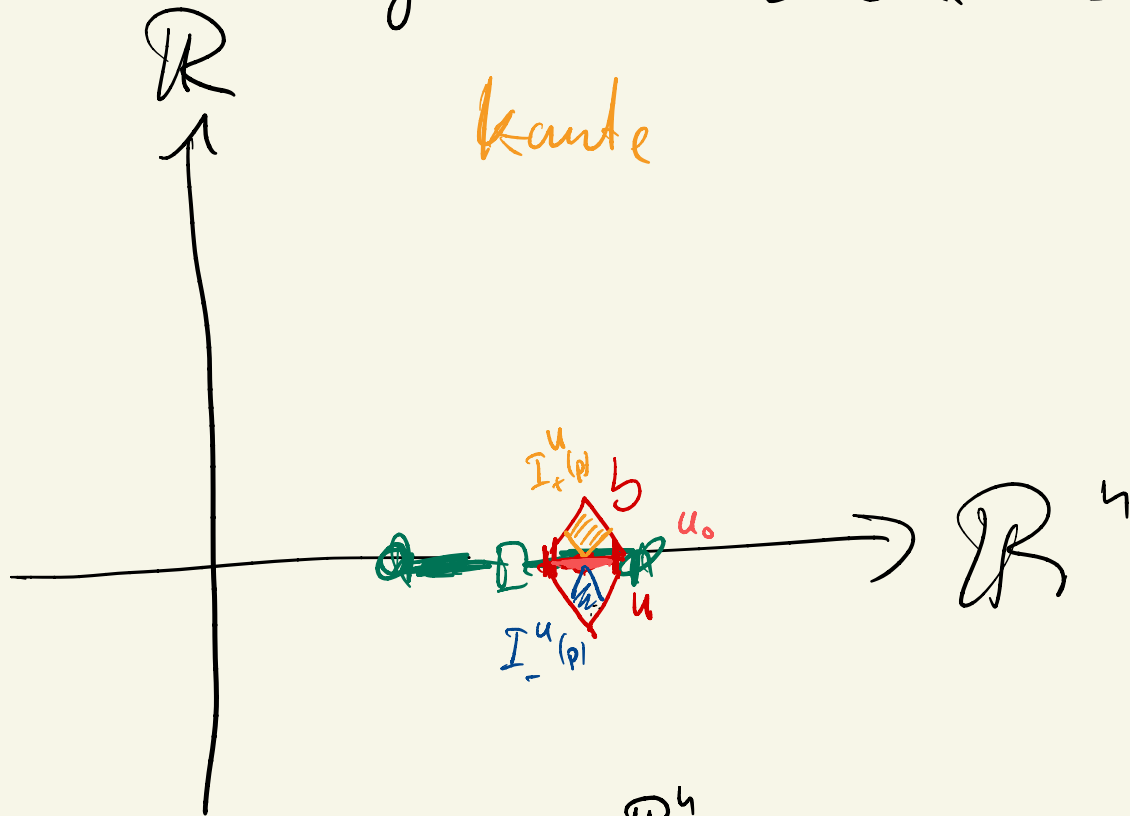 ℝ
Kante
I₊ᵁ(p)
b
u₀
ℝⁿ
u
I₋ᵁ(p)
ℝⁿ